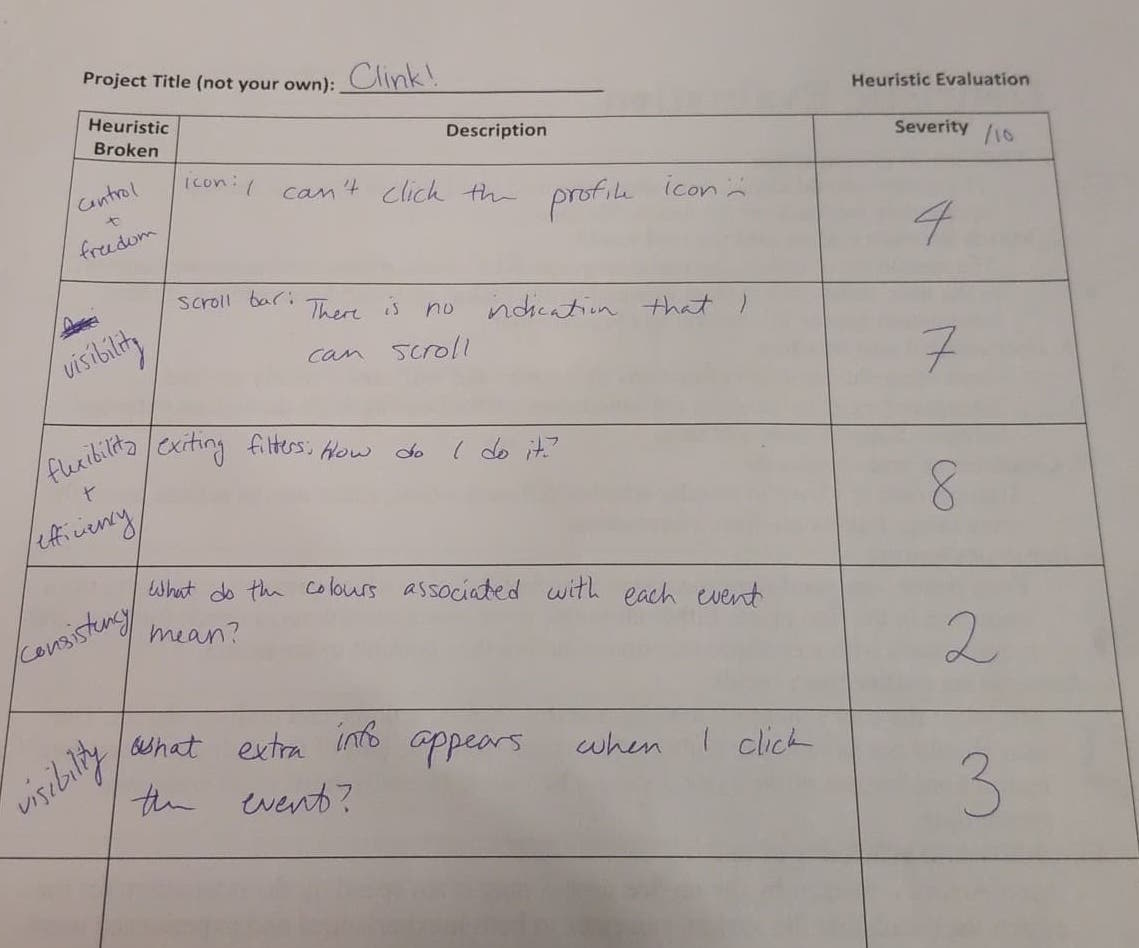 Project Title (not your own): Clink!
Heuristic Evaluation
Heuristic Broken
Description
Severity /10
control
+
freedom
icon: I can't click the profile icon
4
visibility
scroll bar: There is no indication that I
can scroll
7
flexibility
+
efficiency
exiting filters: How do I do it?
8
consistency
What do the colours associated with each event
mean?
2
visibility
What extra info appears when I click
the event?
3